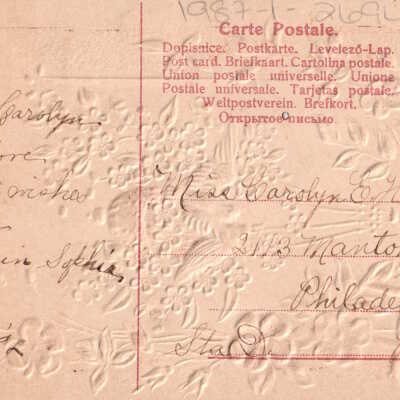 1987-1-2692
Carte Postale.
Dopisnice. Postkarte. Levelező-Lap.
Post card. Briefkaart. Cartolina postale.
Union postale universelle. Unione
Postale universale. Tarjetas postale.
Weltpostverein. Brefkort.
Открытое письмо.
Carolyn.
wishes
in Sophia,
Miss Carolyn E. H
2113 Manton
Philade
Sta D.